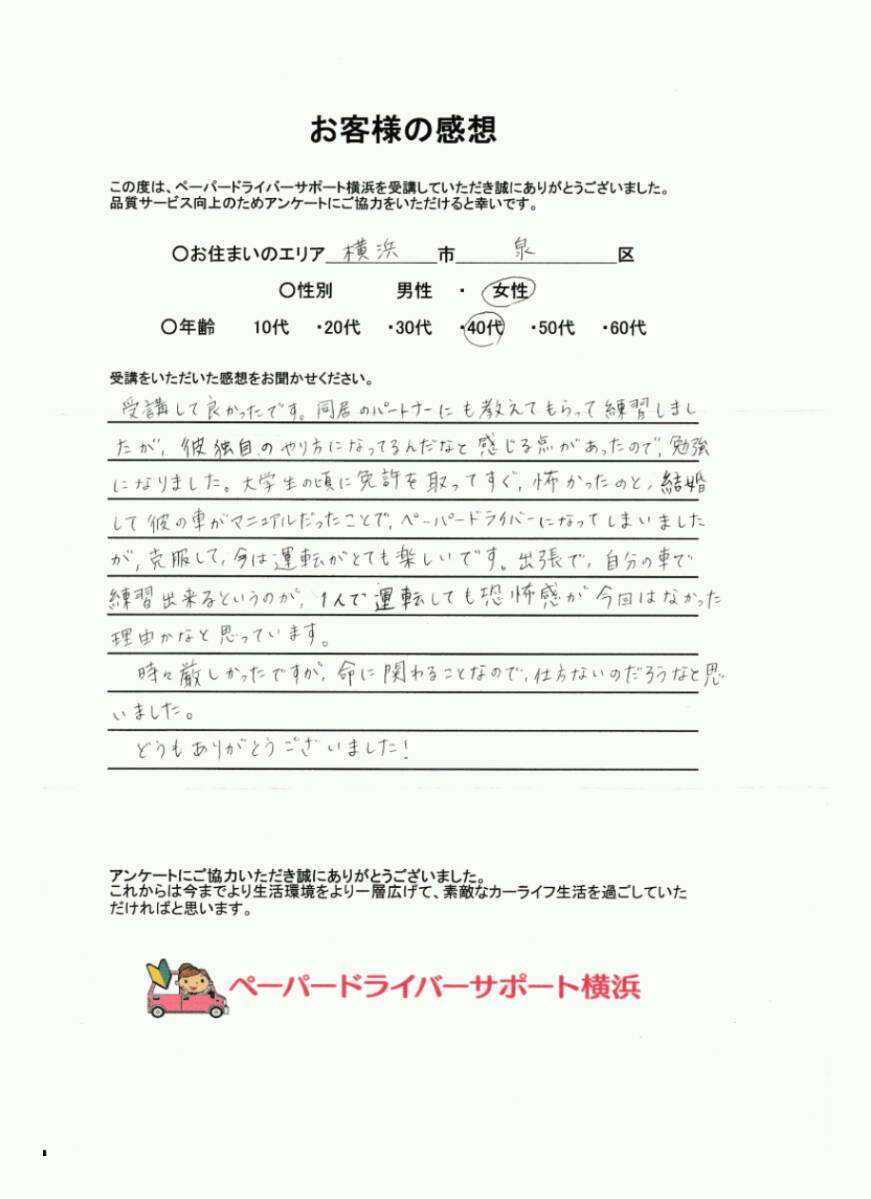 お客様の感想
この度は、ペーパードライバーサポート横浜を受講していただき誠にありがとうございました。
品質サービス向上のためアンケートにご協力をいただけると幸いです。
〇お住まいのエリア 横浜 市 泉 区
〇性別 男性 ・ 女性
〇年齢 10代 ・20代 ・30代 ・40代 ・50代 ・60代
受講をいただいた感想をお聞かせください。
受講して良かったです。同居のパートナーにも教えてもらって練習しまし
たが、彼独自のやり方になってるんだなと感じる点があったので、勉強
になりました。大学生の頃に免許を取ってすぐ、怖かったのと、結婚
して彼の車がマニュアルだったことで、ペーパードライバーになってしまいました
が、克服して、今は運転がとても楽しいです。出張で、自分の車で
練習出来るというのが、1人で運転しても恐怖感が今回はなかった
理由かなと思っています。
時々厳しかったですが、命に関わることなので、仕方ないのだろうなと思
いました。
どうもありがとうございました!
アンケートにご協力いただき誠にありがとうございました。
これからは今までより生活環境をより一層広げて、素敵なカーライフ生活を過ごしていた
だければと思います。
ペーパードライバーサポート横浜